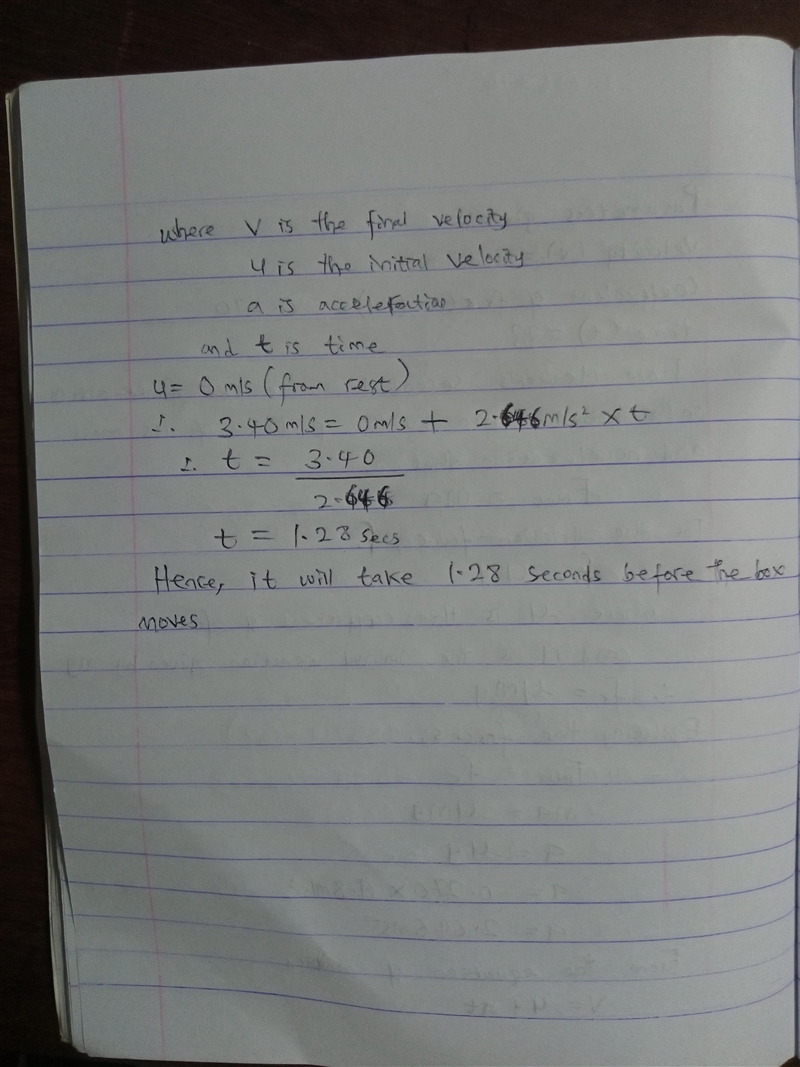 where V is the final velocity
u is the initial velocity
a is acceleration
and t is time
u = 0 m/s (from rest)
∴ 3.40 m/s = 0 m/s + 2.646 m/s² × t
∴ t = 3.40
2.646
t = 1.28 secs
Hence, it will take 1.28 seconds before the box
moves